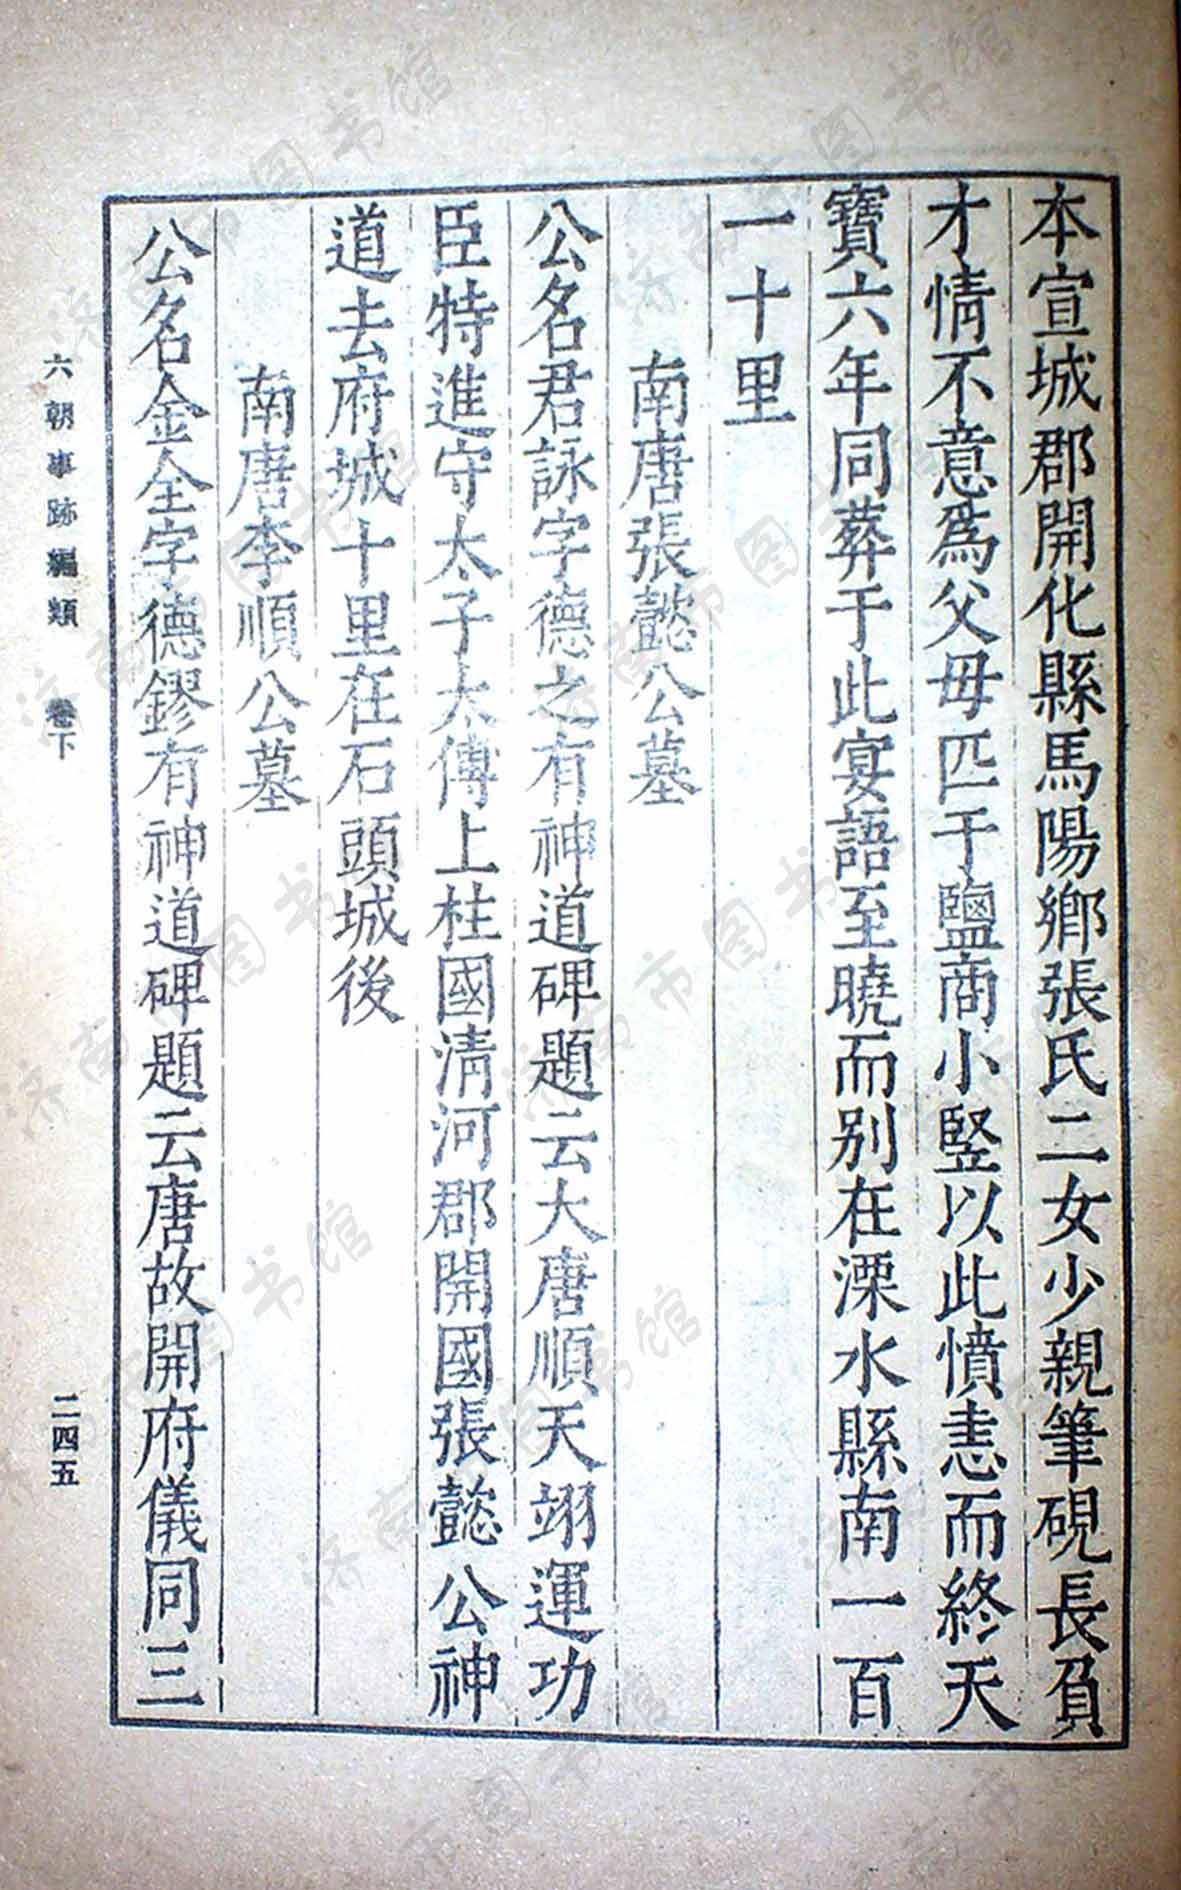 本宣城郡開化縣馬陽鄉張氏二女少親筆硯長負
才情不意爲父母匹于鹽商小豎以此憤恚而終天
寶六年同葬于此宴語至曉而別在溧水縣南一百
一十里
南唐張懿公墓
公名君詠字德之有神道碑題云大唐順天翊運功
臣特進守太子太傅上柱國清河郡開國張懿公神
道去府城十里在石頭城後
南唐李順公墓
公名金全字德鏐有神道碑題云唐故開府儀同三
六朝事跡編類 卷下
二四五
济南市图书馆